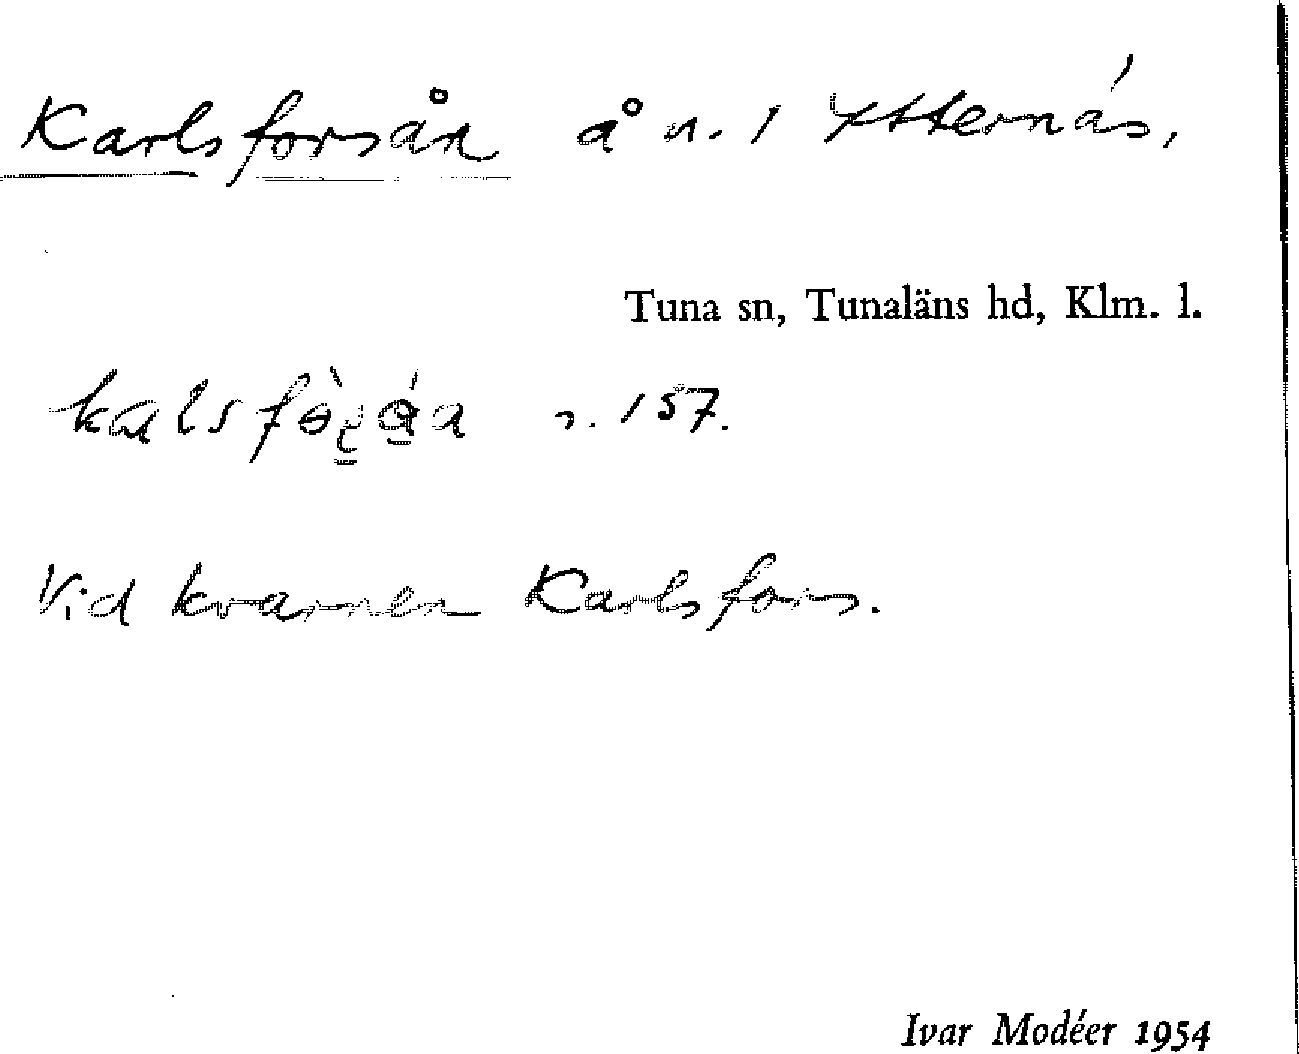 Karlsforsån å n. / Ytternäs,
Tuna sn, Tunaläns hd, Klm. l.
157.
Vid kvarnen Karlsfors.
Ivar Modéer 1954